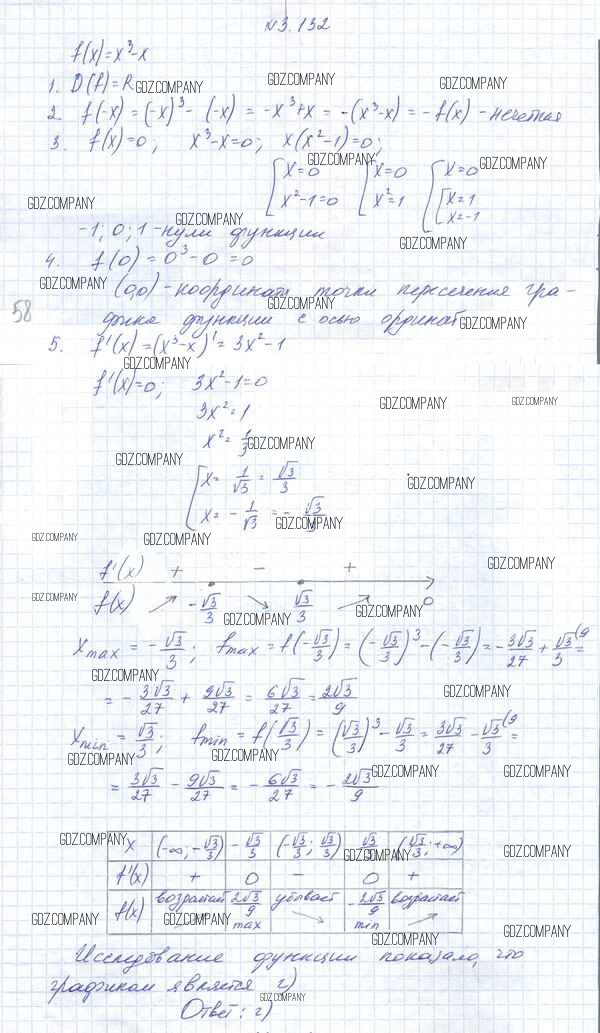 №3.132
f(x)=x³-x
1. D(f)=R
2. f(-x)=(-x)³-(-x)=-x³+x=-(x³-x)=-f(x) - нечетная
3. f(x)=0; x³-x=0; x(x²-1)=0;
[x=0 [x=0 [x=0
[x²-1=0 [x²=1 [[x=1
[[x=-1
-1; 0; 1 - нули функции
4. f(0)=0³-0=0
(0,0) - координата точки пересечения гра-
58
фика функции с осью ординат
5. f'(x)=(x³-x)'=3x²-1
f'(x)=0; 3x²-1=0
3x²=1
x²=1/3
[x=1/√3=√3/3
[x=-1/√3=-√3/3
f'(x) + - +
f(x) ↗ -√3/3 ↘ √3/3 ↗ 0
x max = -√3/3; f max = f(-√3/3)=(-√3/3)³-(-√3/3)=-3√3/27+√3/3 (9 =
=-3√3/27+9√3/27=6√3/27=2√3/9
x min = √3/3; f min = f(√3/3)=(√3/3)³-√3/3=3√3/27-√3/3 (9 =
=3√3/27-9√3/27=-6√3/27=-2√3/9
x (-∞;-√3/3) -√3/3 (-√3/3;√3/3) √3/3 (√3/3;+∞)
f'(x) + 0 - 0 +
f(x) возрастает ↗ 2√3/9 max убывает ↘ -2√3/9 min возрастает ↗
Исследование функции показало, что
графиком является г)
Ответ: г)
GDZ.COMPANY